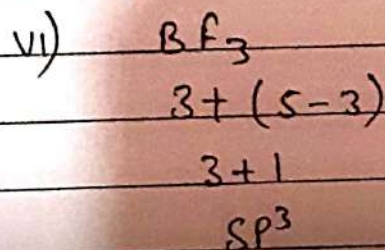 VI) BF3
3+(5-3)
3+1
SP3